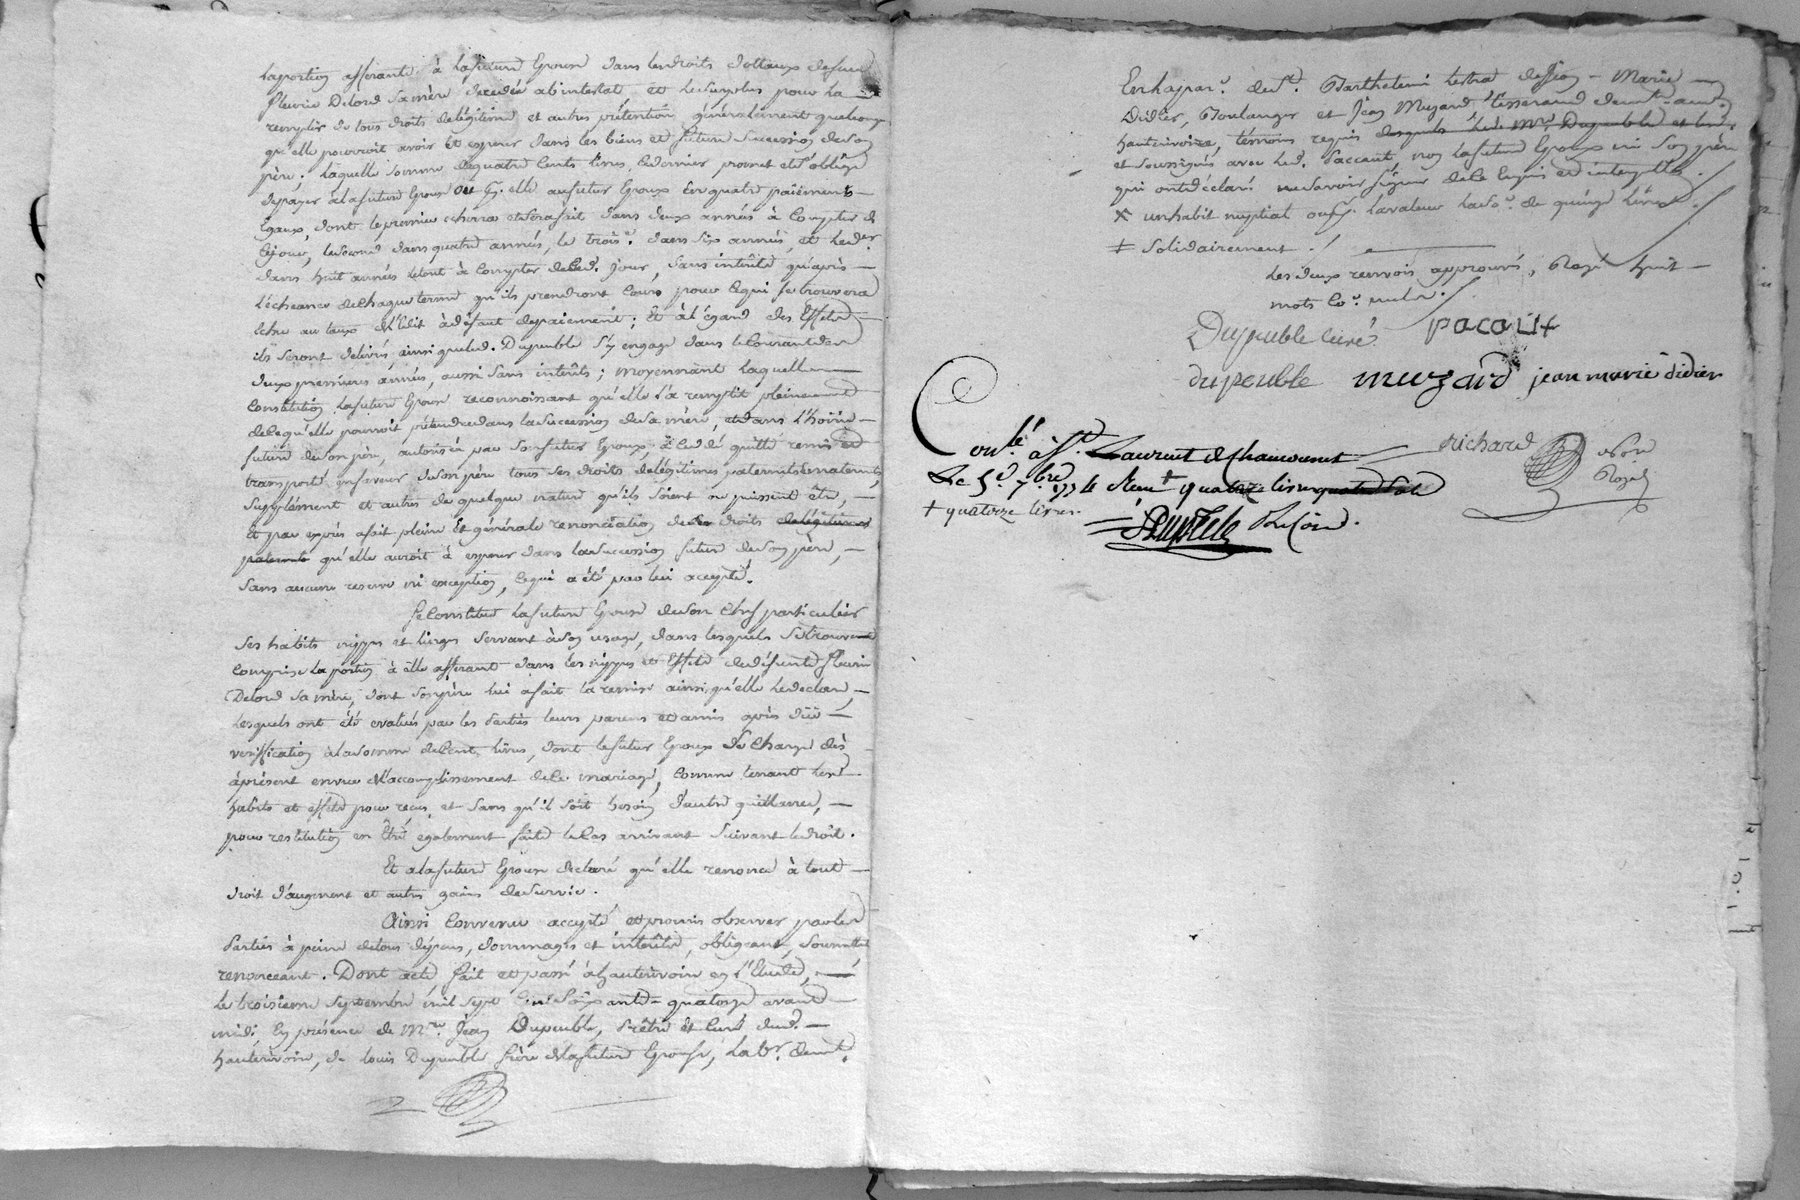 la portion afferante à la future Epouse dans les droits dottaux de feue
fleurie Delord sa mère decedée ab intestat, et le surplus pour la
remplir de tous droits de légitime et autres prétentions généralement quelconq.
qu'elle pourroit avoir et esperer dans les biens et future succession de son
père; laquelle somme de quatre cents livres, ce dernier promet et s'oblige
de payer à la future Epouse ou p. elle au futur Epoux en quatre paiements
Egaux, dont le premier echerra et se fera fait dans deux années à compter de
ce jour, le second dans quatre années, le trois.e dans six années, et le der.
dans huit années le tout à compter de ced. jour, sans intérêts qu'après
l'écheance de chaque terme qu'ils prendront cours pour ce qui se trouvera
echu au taux de l'édit à défaut de paiement; Et à l'égard des Effets
ils seront delivrés ainsi que led. Dupeuble s'y engage dans le courant des
deux premieres années, aussi sans intérêts; moyennant laquelle
Constitution la future Epouse reconnoissant qu'elle la remplit pleinement
de ce qu'elle pourroit prétendre dans la succession de sa mère, et dans l'hoirie
future de son père, autorisée par son futur Epoux, a cedé quitté remis et
transporté en faveur de son père tous ses droits de légitimes paternels maternels,
supplément et autres de quelque nature qu'ils soient ou puissent être,
et par exprès a fait pleine et générale renonciation de droits de légitimes
paternels qu'elle auroit à esperer dans la succession future de son père,
sans aucune reserve ni exception, ce qui a été par lui accepté.
Se Constitue la future Epouse de son chef particulier
ses habits nippes et linges servant à son usage, dans lesquels se trouvent
comprise la portion à elle afferant dans les nippes et Effets de défunte fleurie
Delord sa mère, dont son père lui a fait la remise ainsi qu'elle le declare,
lesquels ont été evalués par les Parties leurs parens et amis après düe
verification à la somme de cent livres, dont le futur Epoux se charge dès
àprésent en vue de l'accomplissement de ce mariage, comme tenant lesd.
habits et effets pour reçus, et sans qu'il soit besoin d'autre quittance,
pour restitution en être egalement faite le cas arrivant suivant le droit.
Et a la future Epouse declaré qu'elle renonce à tout
droit d'augment et autres gains de survie.
Ainsi Convenu accepté et promis observer par les
Parties à peine de tous dépens, dommages et intérêts, obligeant, soumettant
renonceant. Dont acte fait et passé à hauterivoire en l'Etude,
le troisieme septembre mil sept cent soixante-quatorze avant
midi; En présence de M.re Jean Dupeuble, Prêtre et Curé dud.
hauterivoire, de louis Dupeuble frère de la future Epouse, lab.r demt.
En ha par. de s.t Barthelemi lestra de Jean-Marie
Didier, Boulanger et Jean Muzard tisserand demt. aud.
hauterivoire, témoins requis desquels led. M.re Dupeuble et les
et soussignés avec led. Paccaut, non la future Epouse ni son père
qui ont déclaré ne savoir signer de ce enquis et interpellés.
X un habit nuptial ou p. la valeur la so. de quinze livres.
‡ solidairement.
Les deux renvois approuvés, Rayé huit
mots co. nuls.
Dupeuble curé pacaut
dupeuble muzard jean marie didier
richard Not.re Royal
Con.lé à S.t Laurent de Chamousset
Le 5.e 7.bre 1774 Reçu † quatre livres quatre sols
† quatorze livres